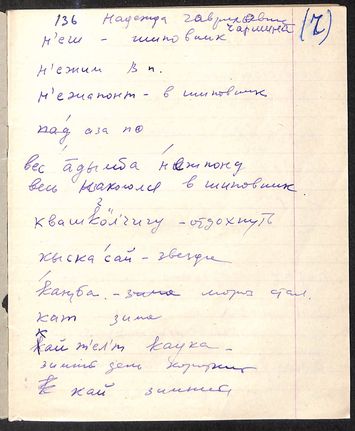 136 Надежда Гавриловна
Чарпина (7)
н'еш - шиповник
н'ежин В п.
н'ежапонт - в шиповник
ка́д аза по
вес а́дымба н'ожпонд
весь накололся в шиповник
кваш кол'чигу - отдохнуть
кыска сай - звезды
ка́нгба - зима моръ стал.
кат зима
кай т'ел'т каука -
зимний день короткий
к кай зимний